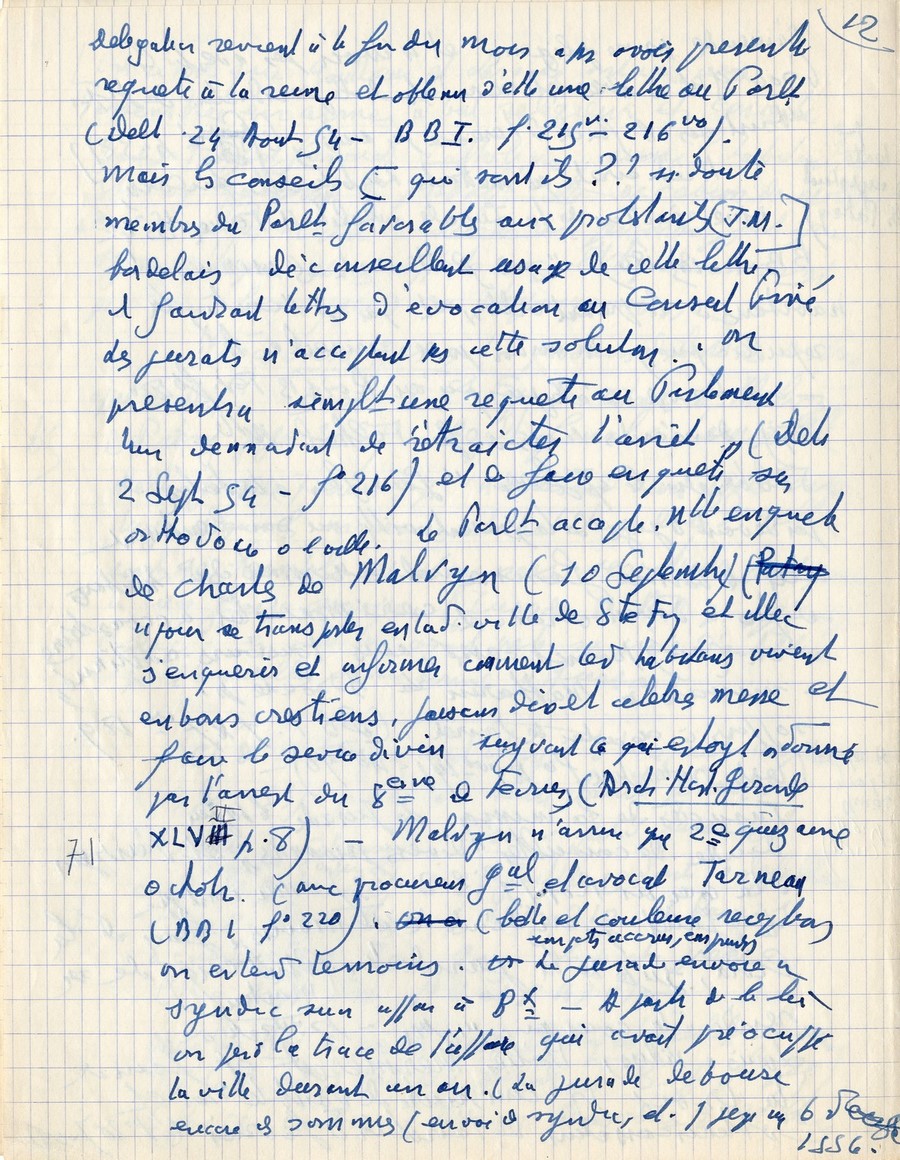 12
delegation revient à la fin du mois aps avoir presenté
requete à la reine et obtenu d'elle une lettre au Parlt
(Delt. 24 Aout 54 - BB I. f. 215 vo - 216 vo).
mais les conseils [ qui sont ils ?? ss doute
membres du Parlt favorables aux protestants (J.M.)]
bordelais déconseillent usage de cette lettre,
il faudrait lettres d'évocation au Conseil Privé
les jurats n'acceptent pas cette solution. on
presentera simplt une requete au Parlement
lui demandant de rétraicter l'arrêt (Delt
2 Sept 54 - fo 216) et de faire enquete sur
orthodoxie de la ville. Le Parlt accepte. nlle enquete
de Charles de Malvyn (10 Septembre)
se transporter en lad. ville de Ste Foy et illec
s'enquerir et informer comment les habitans vivent
en bons crestiens, faisans dire et celebrer messe et
faire le service divin suyvant ce qui estoyt ordonné
par l'arrest du 8eme de Fevrier (Arch. Hist. Gironde
XLVIII p. 8) - Malvyn n'arrive que 2e quinzaine
71
octobr. (avec procureur gal et avocat Tarneau
(BB I fo 220). (belle et couteuse reception
on entend temoins. La jurade envoie un
impots accrus, emprunts
syndic suivre affaire à Bx - A partir de là
on perd la trace de l'affaire qui avait préoccupé
la ville durant un an. (La jurade debourse
encore des sommes (envoi de syndic, 6 Dec
1556.